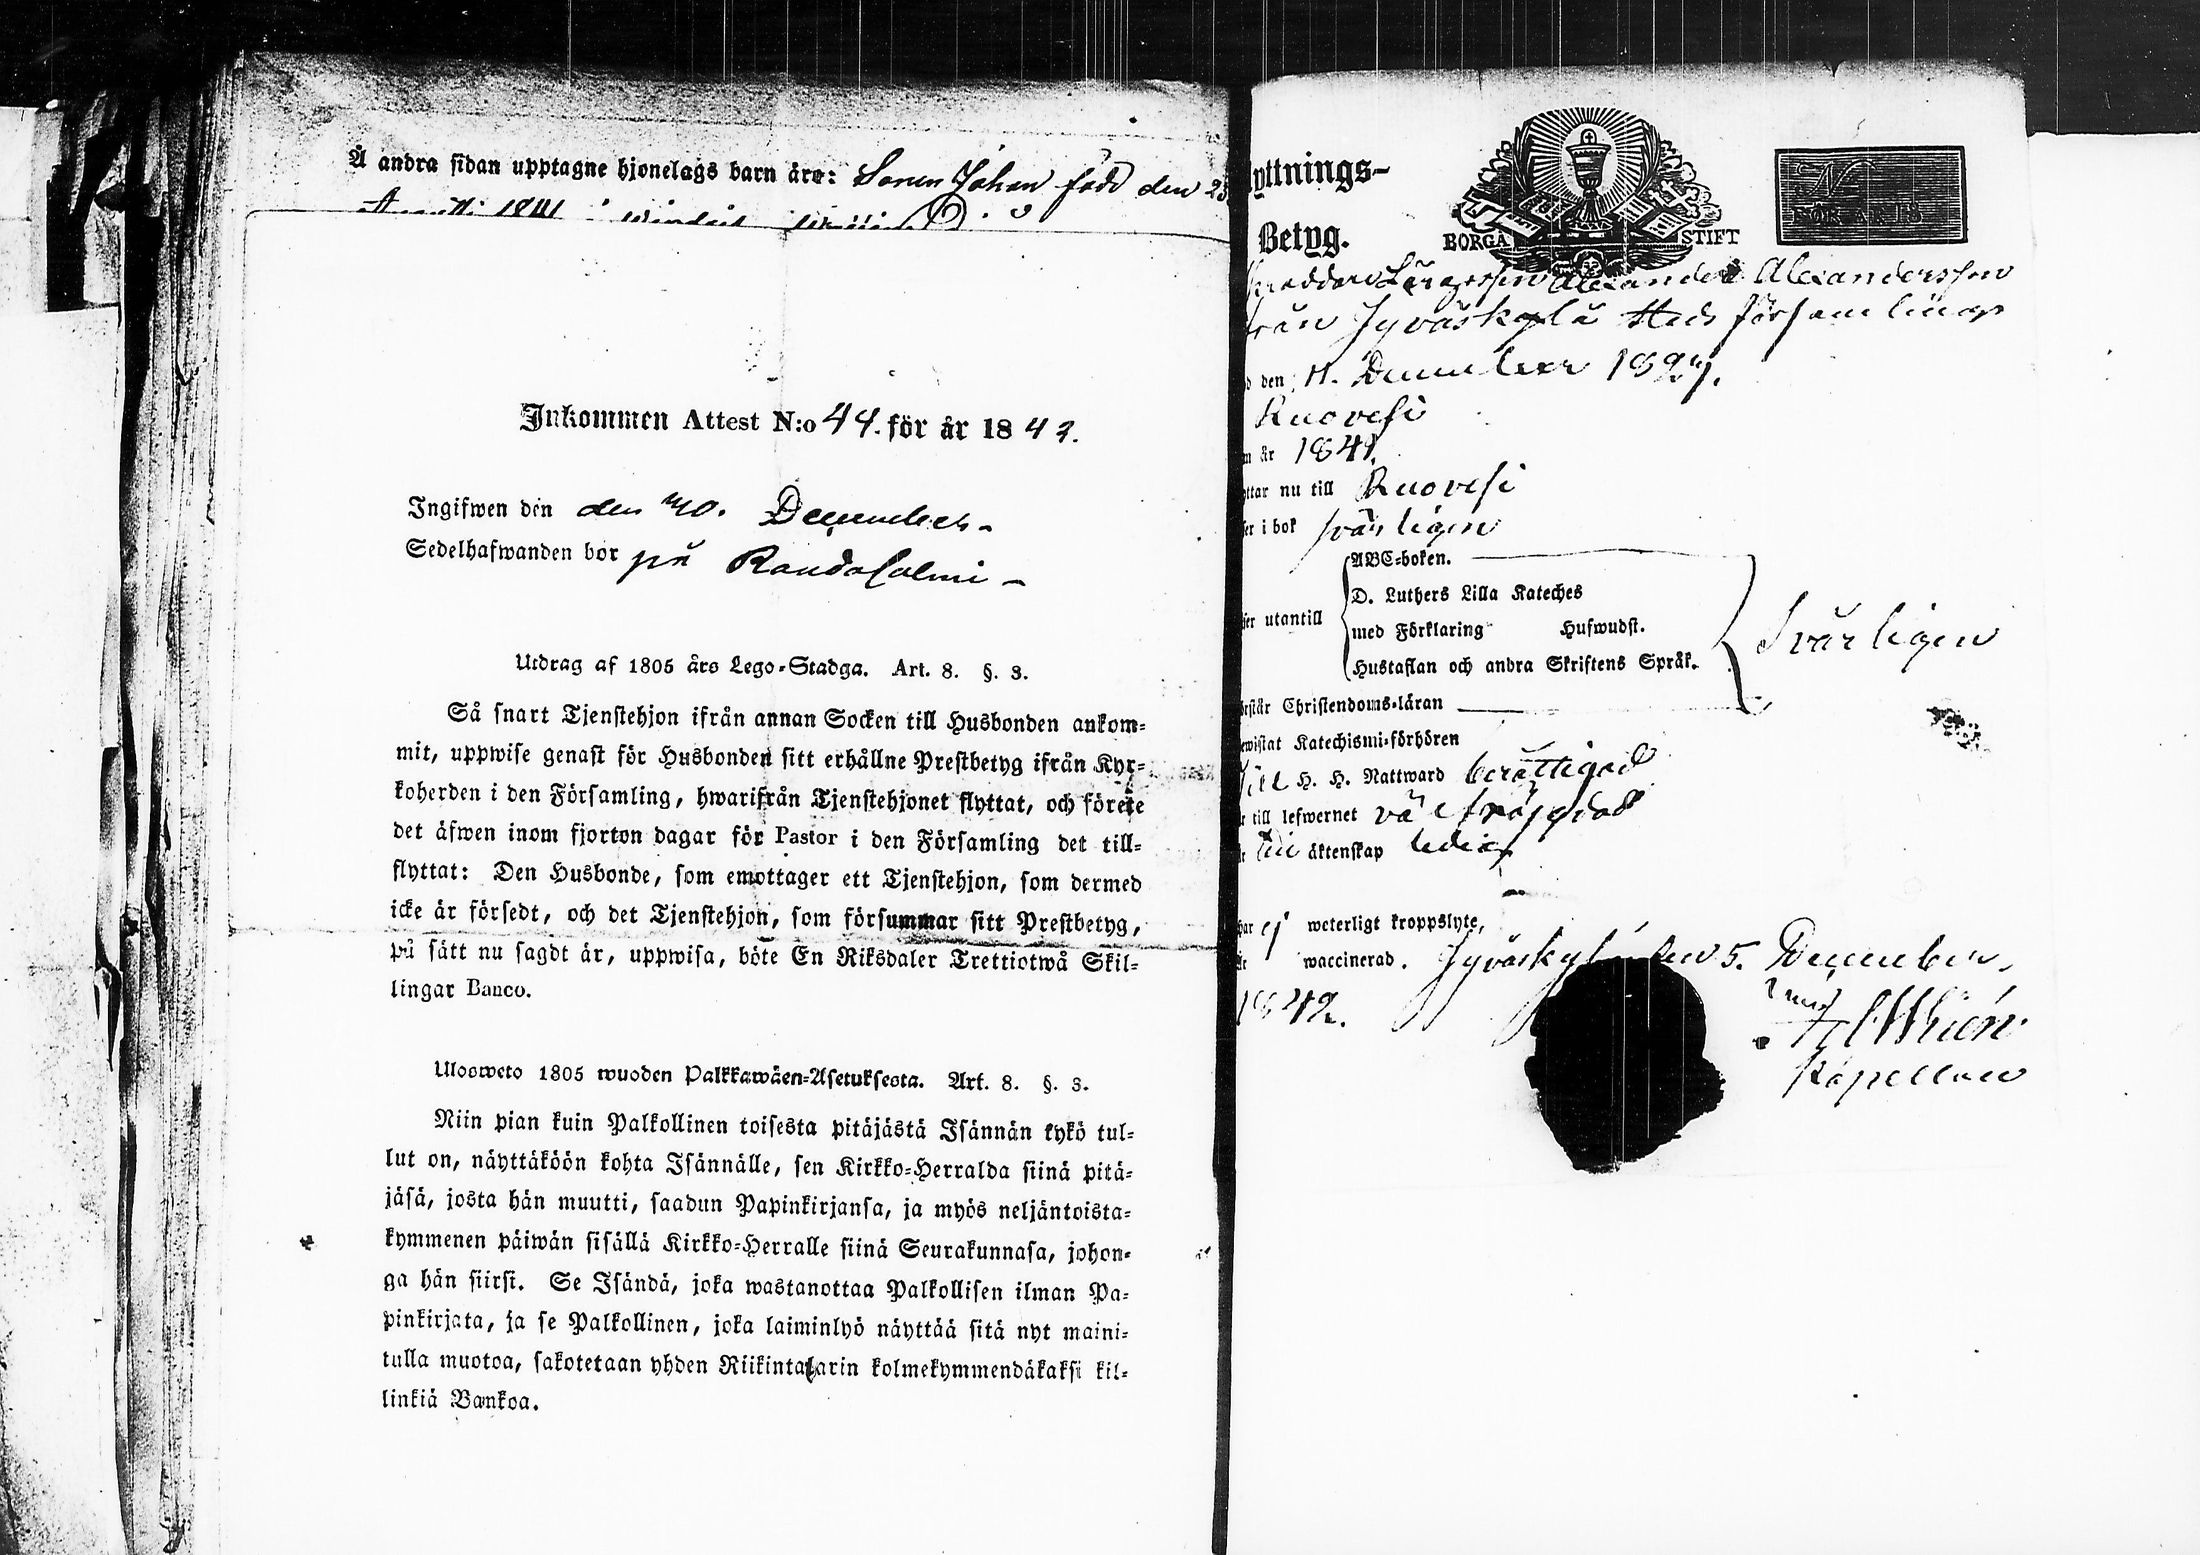 Å andra sidan upptagne hjonelags barn äro: Sonen Johan född den 23
Inkommen Attest N:o 44. för år 1842.
Ingifwen den den 20. December
Sedelhafwanden bor på Raudasalmi
Utdrag af 1805 års Lego-Stadga. Art. 8. §. 3.
Så snart Tjenstehjon ifrån annan Socken till Husbonden ankom-
mit, uppwise genast för Husbonden sitt erhållne Prestbetyg ifrån Kyr-
koherden i den Församling, hwarifrån Tjenstehjonet flyttat, och förete
det äfwen inom fjorton dagar för Pastor i den Församling det till-
flyttat: Den Husbonde, som emottager ett Tjenstehjon, som dermed
icke är försedt, och det Tjenstehjon, som försummar sitt Prestbetyg,
på sätt nu sagdt är, uppwisa, böte En Riksdaler Trettiotwå Skil-
lingar Banco.
Ulosweto 1805 wuoden Palkkawäen-Asetuksesta. Art. 8. §. 3.
Niin pian kuin Palkollinen toisesta pitäjästä Isännän tykö tul-
lut on, näyttäköön kohta Isännälle, sen Kirkko-Herralda siinä pitä-
jäsä, josta hän muutti, saadun Papinkirjansa, ja myös neljäntoista-
kymmenen päiwän sisällä Kirkko-Herralle siinä Seurakunnasa, johon-
ga hän siirsi. Se Isändä, joka wastanottaa Palkollisen ilman Pa-
pinkirjata, ja se Palkollinen, joka laiminlyö näyttää sitä nyt maini-
tulla muotoa, sakotetaan yhden Riikintalarin kolmekymmendäkaksi kil-
linkiä Bankoa.
yttnings-
Betyg.
BORGÅ STIFT
FÖR ÅR 18
Alexander Alexandersson
från Jyväskylä Stads församling
den 11. December 1827.
Ruovesi
år 1841.
ttar nu till Ruovesi
i bok svårligen
ABC-boken.
D. Luthers Lilla Kateches
utantill
med Förklaring Hufwudst.
Svårligen
Hustaflan och andra Skriftens Språk.
rstår Christendoms-läran
ewistat Katechismi-förhören
till H. H. Nattward berättigad
till lefwernet väl fräjdad
till äktenskap ledig
har ej weterligt kroppslyte,
är waccinerad. Jyväskylä den 5. December
1842.
Kapellan